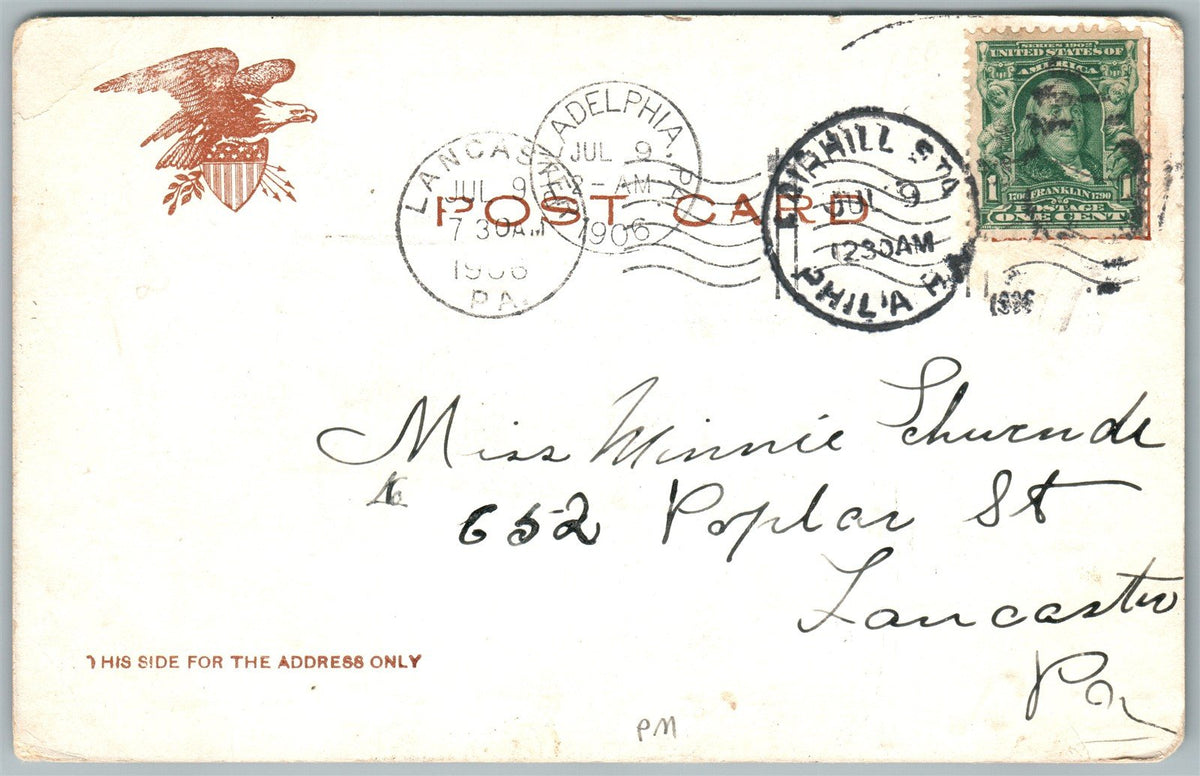 SERIES 1902
UNITED STATES OF
AMERICA
1 FRANKLIN 1790 1
POSTAGE
ONE CENT
PHILADELPHIA, PA.
JUL 9
2-AM
1906
LANCASTER
JUL 9
7 30AM
1906
PA.
FAIRHILL STA.
JUL 9
1230AM
PHIL'A PA.
1906
POST CARD
Miss Minnie Schwende
652 Poplar St
Lancaster
Pa
THIS SIDE FOR THE ADDRESS ONLY
PM